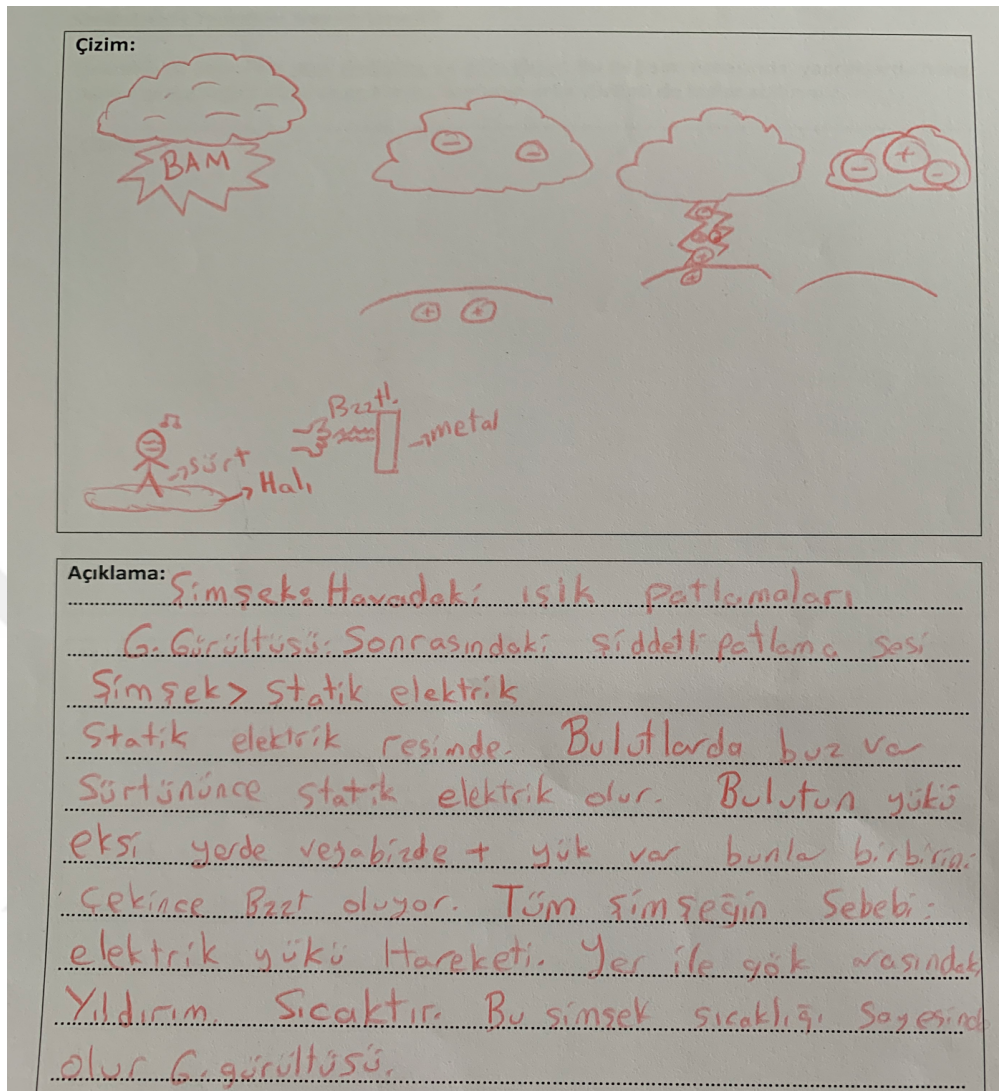 Çizim:
BAM
Bzzt!
metal
sürt
Halı
Açıklama: Şimşek: Havadaki ışık patlamaları
G. Gürültüsü: Sonrasındaki şiddetli patlama sesi
Şimşek > statik elektrik
Statik elektrik resimde. Bulutlarda buz var
Sürtününce statik elektrik olur. Bulutun yükü
eksi yerde veyabizde + yük var bunla birbirini
Çekince Bzzt oluyor. Tüm şimşeğin Sebebi:
elektrik yükü Hareketi. Yer ile gök arasındaki
Yıldırım. Sıcaktır. Bu şimşek sıcaklığı sayesinde
olur G. gürültüsü.